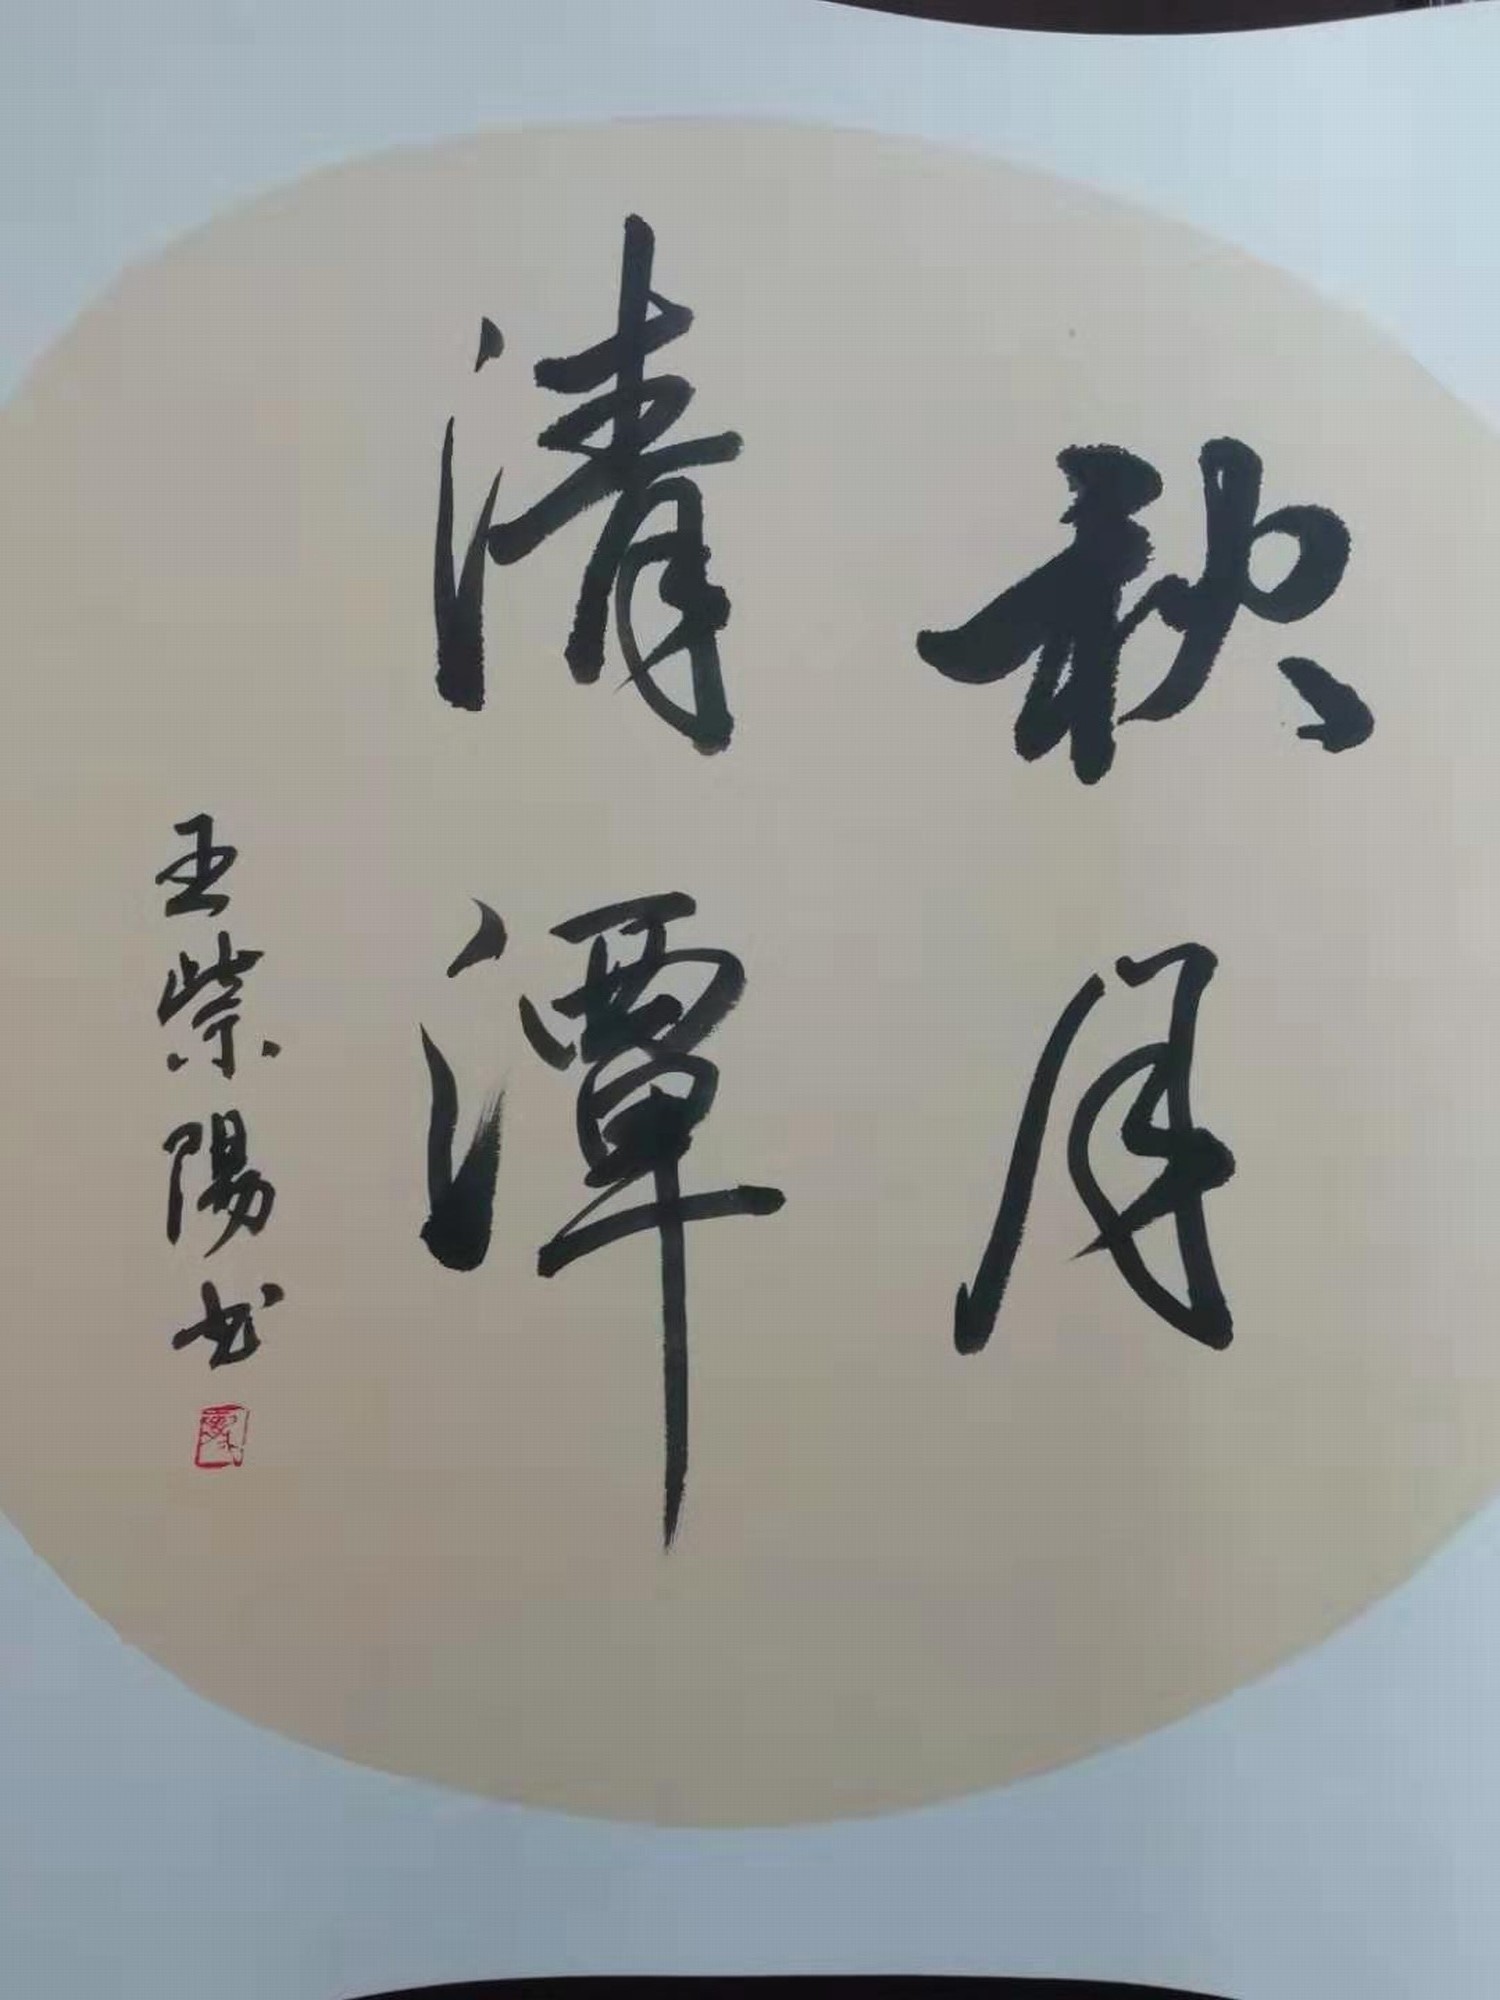 秋月
清潭
王紫陽书